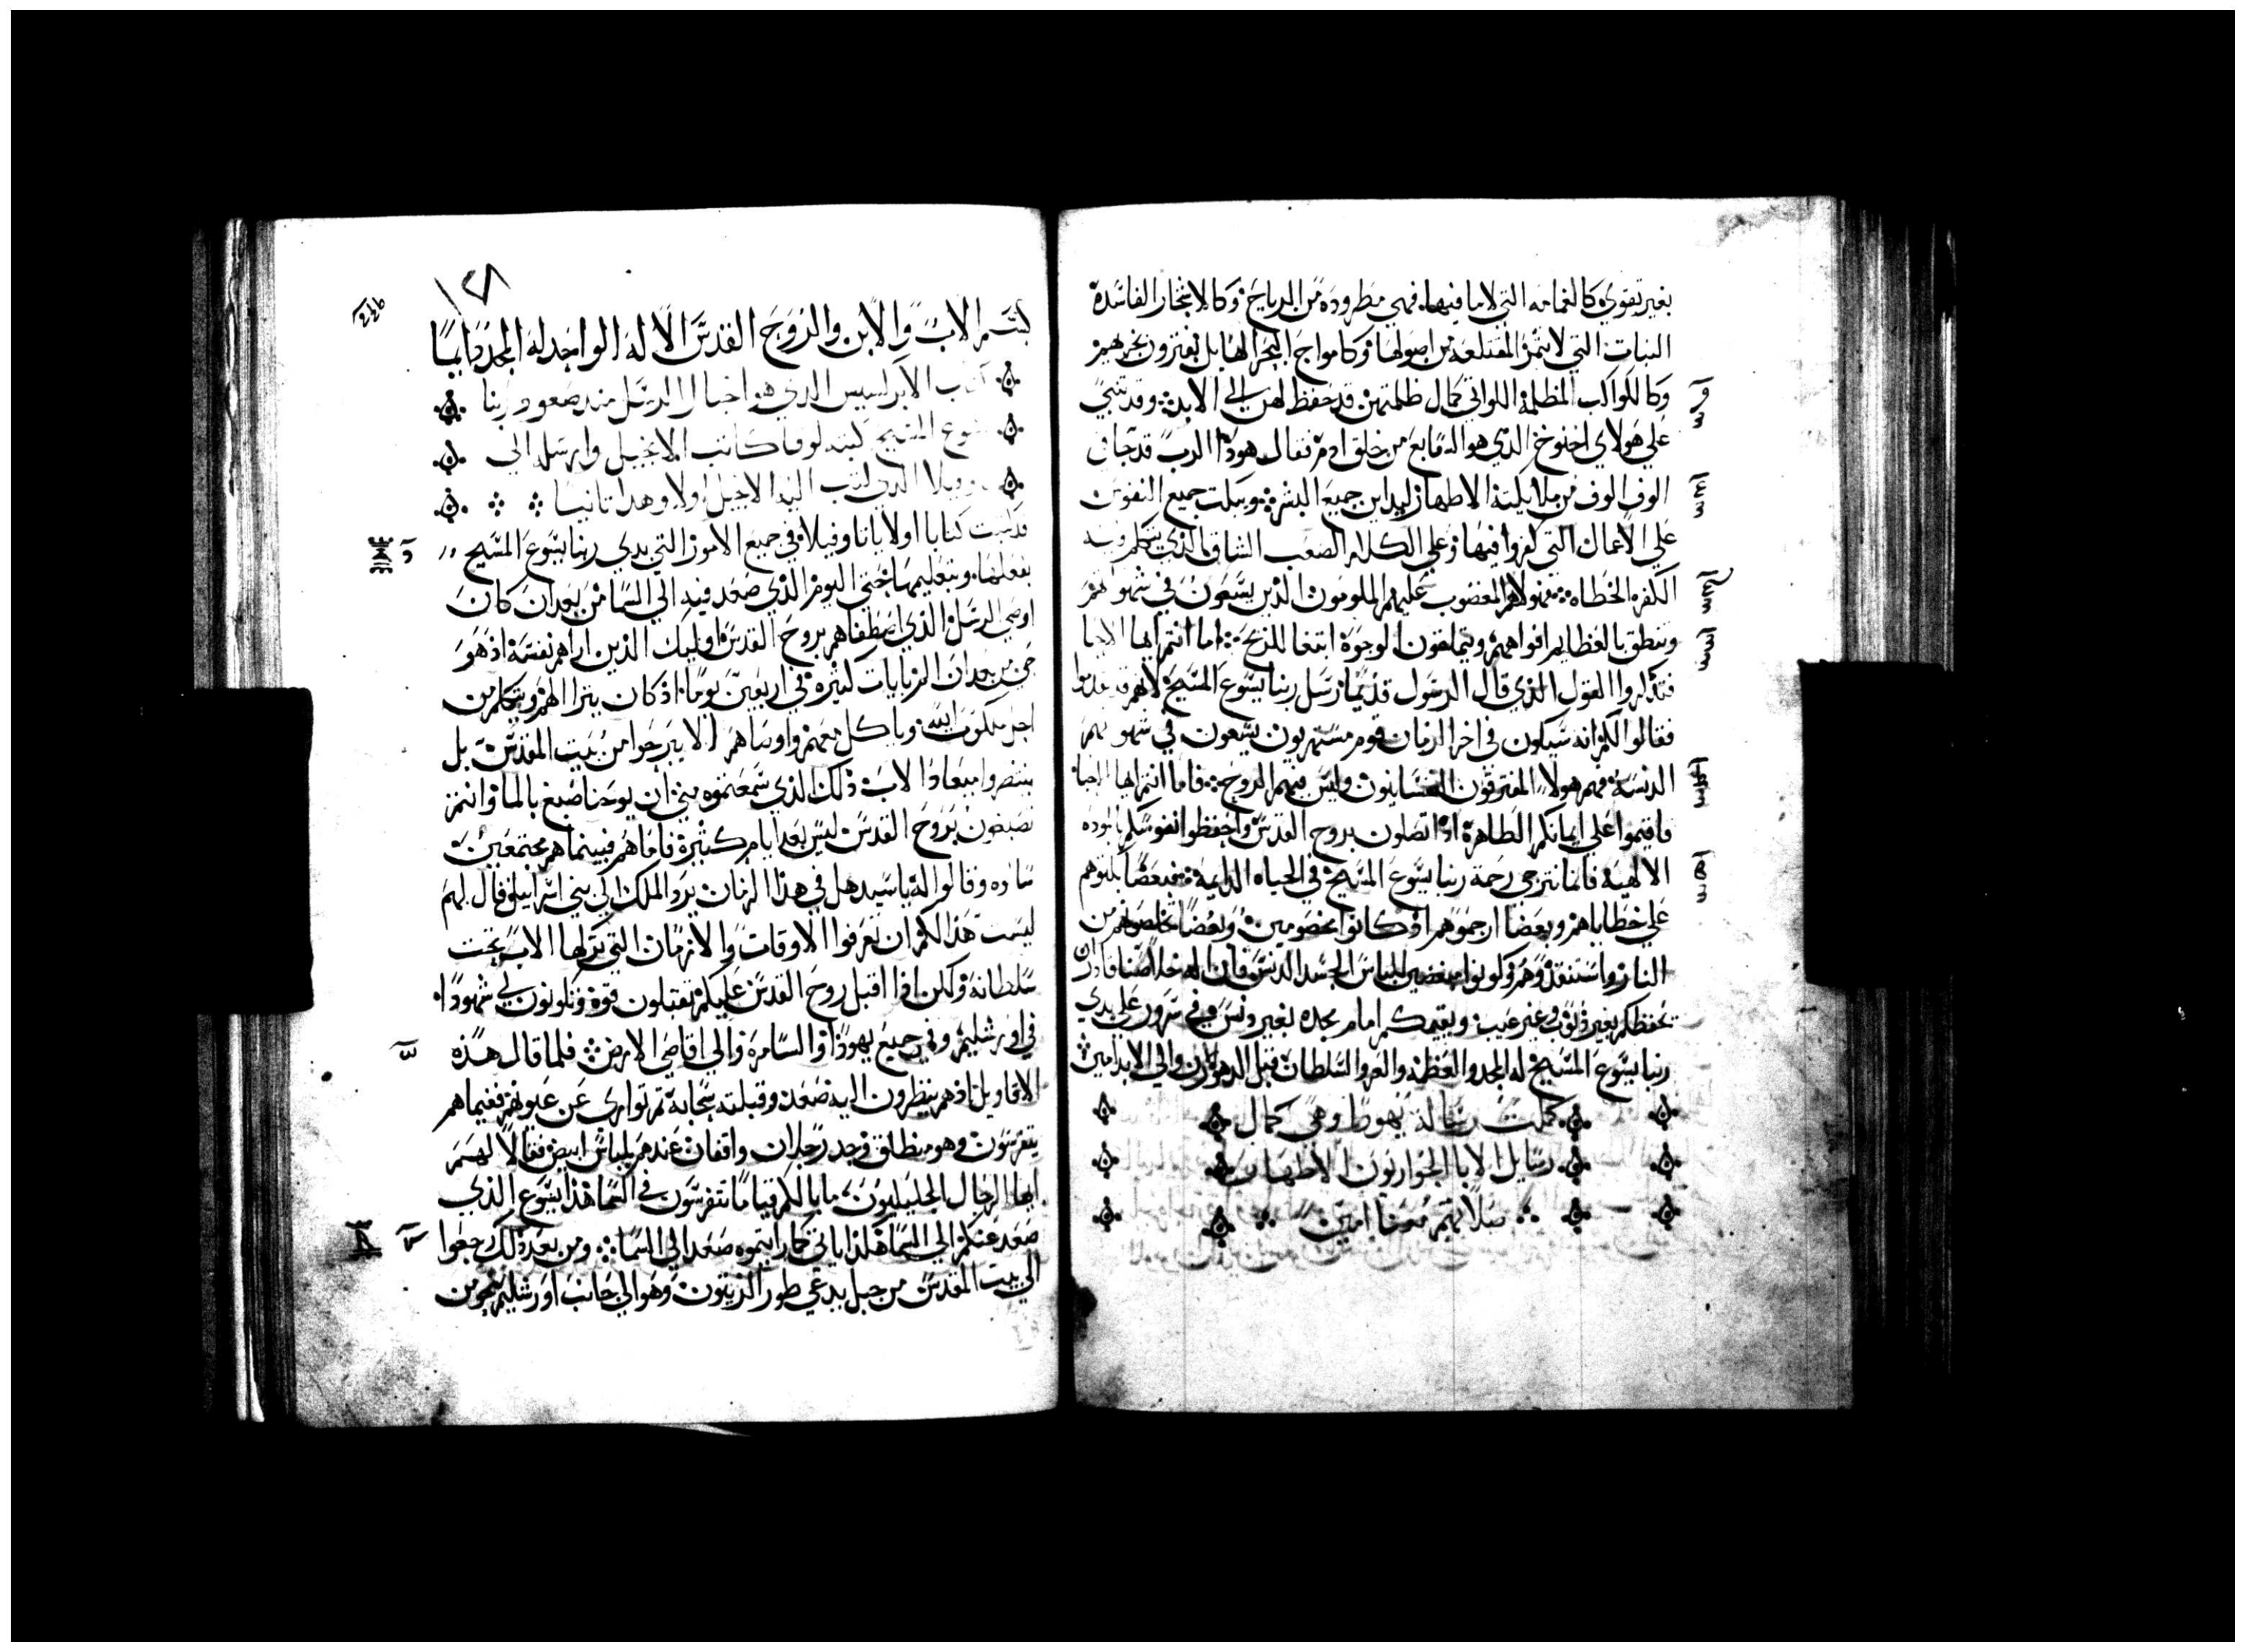 بغير تقوي كالغمامه التي لا ما فيها. فهي مطروده من الرياح. وكالاشجار الفاسدة
النبات التي لا تثمر المقتلعه من اصولها. وكامواج البحر الهايل يفترون بخزيهم
وكالكواكب المظلمة اللواتي كمال ظلمتهن قد حفظ لهن الي الابد. وقد تنبي
علي هولاي اخنوخ الذي هو السابع من خلق ادم فقال هوذا الرب قد جا في
الوف الوف من ملايكته الاطهار ليداين جميع البشر. ويبكت جميع النفوس
علي الاعمال التي كفروا فيها. وعلي الكلام الصعب الشاق الذي تتكلم به
الكفره الخطاه. فهولاهم المغضوب عليهم الملومون الذين يسعون في شهواتهم
وتنطق بالعظايم افواههم. ويتملقون الوجوة ابتغا للربح. اما انتم ايها الاحبا
فتذكروا القول الذي قال الرسول قديما رسل ربنا يسوع المسيح لانهم
فقالوا لكم انه سيكون في اخر الزمان قوم مستهزيون يسعون في شهواتهم
الدنسة. فهم هولا المفترقون النفسانيون وليس فيهم الروح. فاما انتم ايها الاحبا
فاقيموا علي ايمانكم الطاهرة اذا تصلون بروح القدس واحفظوا نفوسكم بالموده
الالهية فاننا نترجي رحمة ربنا يسوع المسيح في الحياه الدايمة. فبعضا بكتوهم
علي خطاياهم وبعضا ارحموهم اذ كانوا مخصومين. وبعضا خلصوهم من
النار واستنقذوهم وكونوا مبغضين للباس الجسد الدنس. فان اله خلاصنا قادر ان
تحفظكم بغير ذنوب وغير عيب. ويقيمكم امام مجده بغير دنس وفي سرور علي يدي
ربنا يسوع المسيح له المجد والعظمه والعز والسلطان قبل الدهور والان والي الابد امين
كملت رسالة يهوذا وهي كمال
رسايل الابا الحواريون الاطهار
صلاتهم معنا امين
١٢٨
بسم الاب والابن والروح القدس الاله الواحد له المجد دايما
كتاب الابركسيس الذي هو اخبار الرسل منذ صعود ربنا
يسوع المسيح كتبه لوقا كاتب الانجيل وارسله الي
الذي كتب اليه الانجيل اولا وهذا ثانيا
قد كتبت كتابا اولا يا ثاوفيلا في جميع الامور التي بدي ربنا يسوع المسيح
بفعلها. وبتعليمها حتي اليوم الذي صعد فيه الي السما من بعد ان كان
اوصي الرسل الذي اصطفاهم بروح القدس اوليك الذين اراهم نفسه اذ هو
حي من بعد ان الم بايات كثيره في اربعين يوما. اذ كان يترا الهم ويتكلم من
اجل ملكوت الله وياكل معهم واوصاهم الا يبرحوا من بيت المقدس بل
ينتظروا ميعاد الاب ذلك الذي سمعتموه مني. ان يوحنا صبغ بالما وانتم
تصبغون بروح القدس ليس بعد ايام كثيرة فاما هم فبينما هم مجتمعين
سالوه وقالوا له يا سيد هل في هذا الزمان يرد الملك الي بني اسراييل. فقال لهم
ليست هذا لكم ان تعرفوا الاوقات والازمان التي تركها الاب تحت
سلطانه. ولكن اذا اقبل روح القدس عليكم تقبلون قوة وتكونون لي شهودا.
في اورشليم وفي جميع يهوذا والسامرة والي اقاصي الارض. فلما قال هذه
الاقاويل اذ هم ينظرون اليه صعد وقبلته سحابة ثم تواري عن عيونهم فبينما هم
يتفرسون وهو منطلق فوجد رجلان واقفان عندهم بلباس ابيض فقالا لهم
ايها الرجال الجليليون. ما بالكم قياما تتفرسون في السما هذا يسوع الذي
صعد عنكم الي السما هكذا ياتي كما رايتموه صعد الي السما. ومن بعد ذلك رجعوا
الي بيت المقدس من جبل يدعي طور الزيتون وهو الي جانب اورشليم نحو من